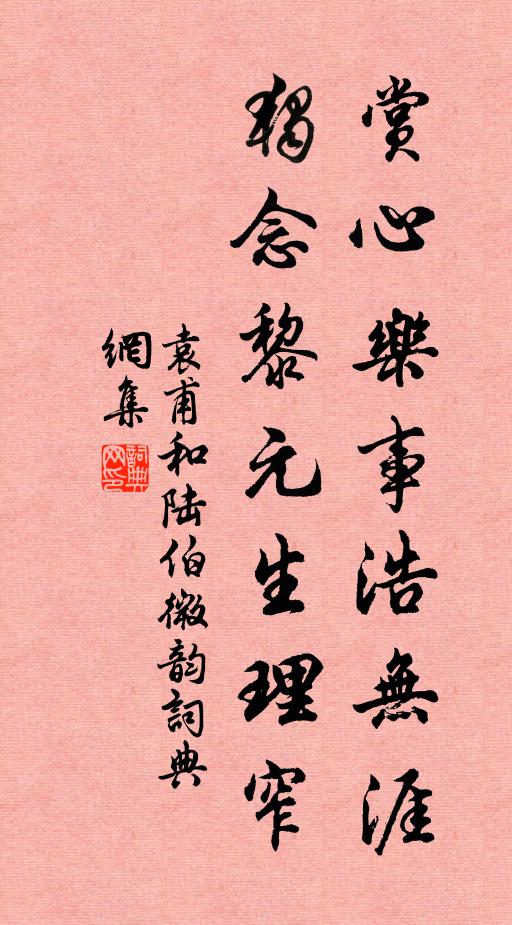 賞心樂事浩無涯
獨念黎元生理窄
袁甫和陸伯微韵詞典
網集
詞典
网印